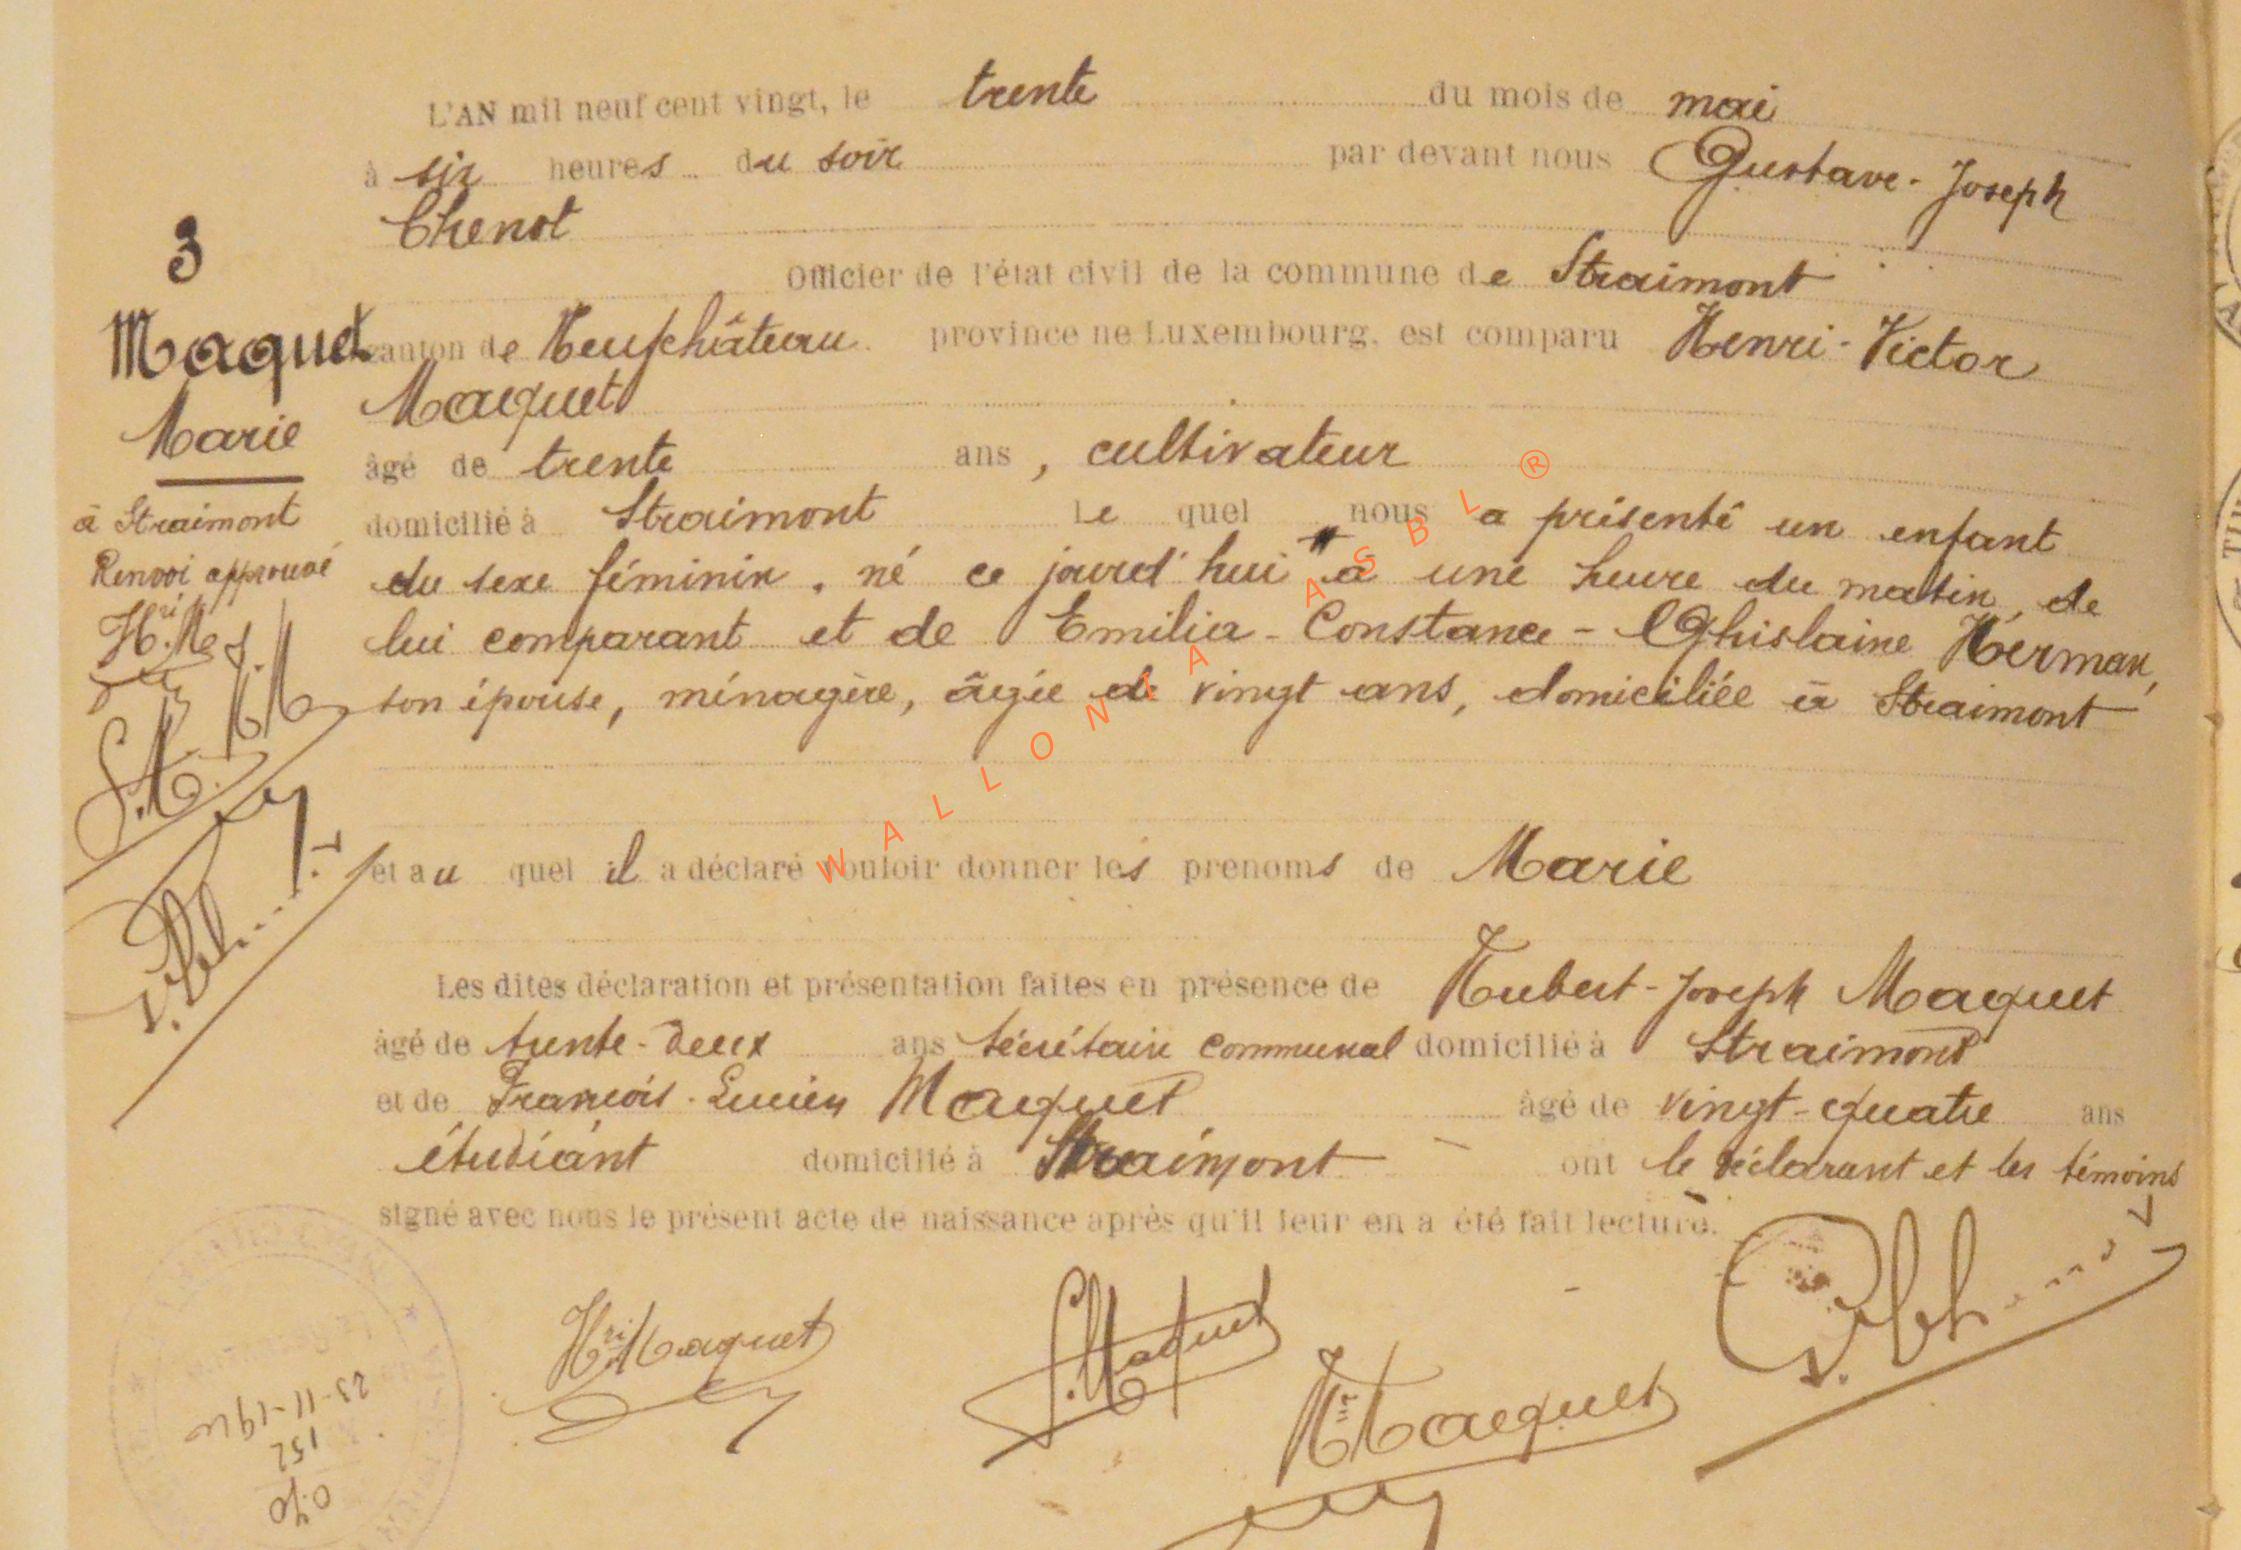 L'AN mil neuf cent vingt, le trente du mois de mai
à six heures du soir par devant nous Gustave-Joseph
Chenot
Officier de l'état civil de la commune de Straimont
canton de Neufchâteau. province ne Luxembourg. est comparu Henri-Victor
Maquet
âgé de trente ans, cultivateur
domicilié à Straimont le quel nous a présenté un enfant
du sexe féminin, né ce jourd'hui # à une heure du matin, de
lui comparant et de Emilia-Constance-Ghislaine Herman,
son épouse, ménagère, âgée de vingt ans, domiciliée à Straimont
et au quel il a déclaré vouloir donner les prenoms de Marie
Les dites déclaration et présentation faites en présence de Hubert-Joseph Maquet
âgé de trente-deux ans secrétaire communal domicilié à Straimont
et de François-Lucien Maquet âgé de vingt-quatre ans
étudiant domicilié à Straimont ont le déclarant et les témoins
signé avec nous le présent acte de naissance après qu'il leur en a été fait lecture.
3
Maquet
Marie
à Straimont
Renvoi approuvé
Hri Maquet
L. Maquet
H Maquet
23-11-19
152
WALLONIA ASBL ®